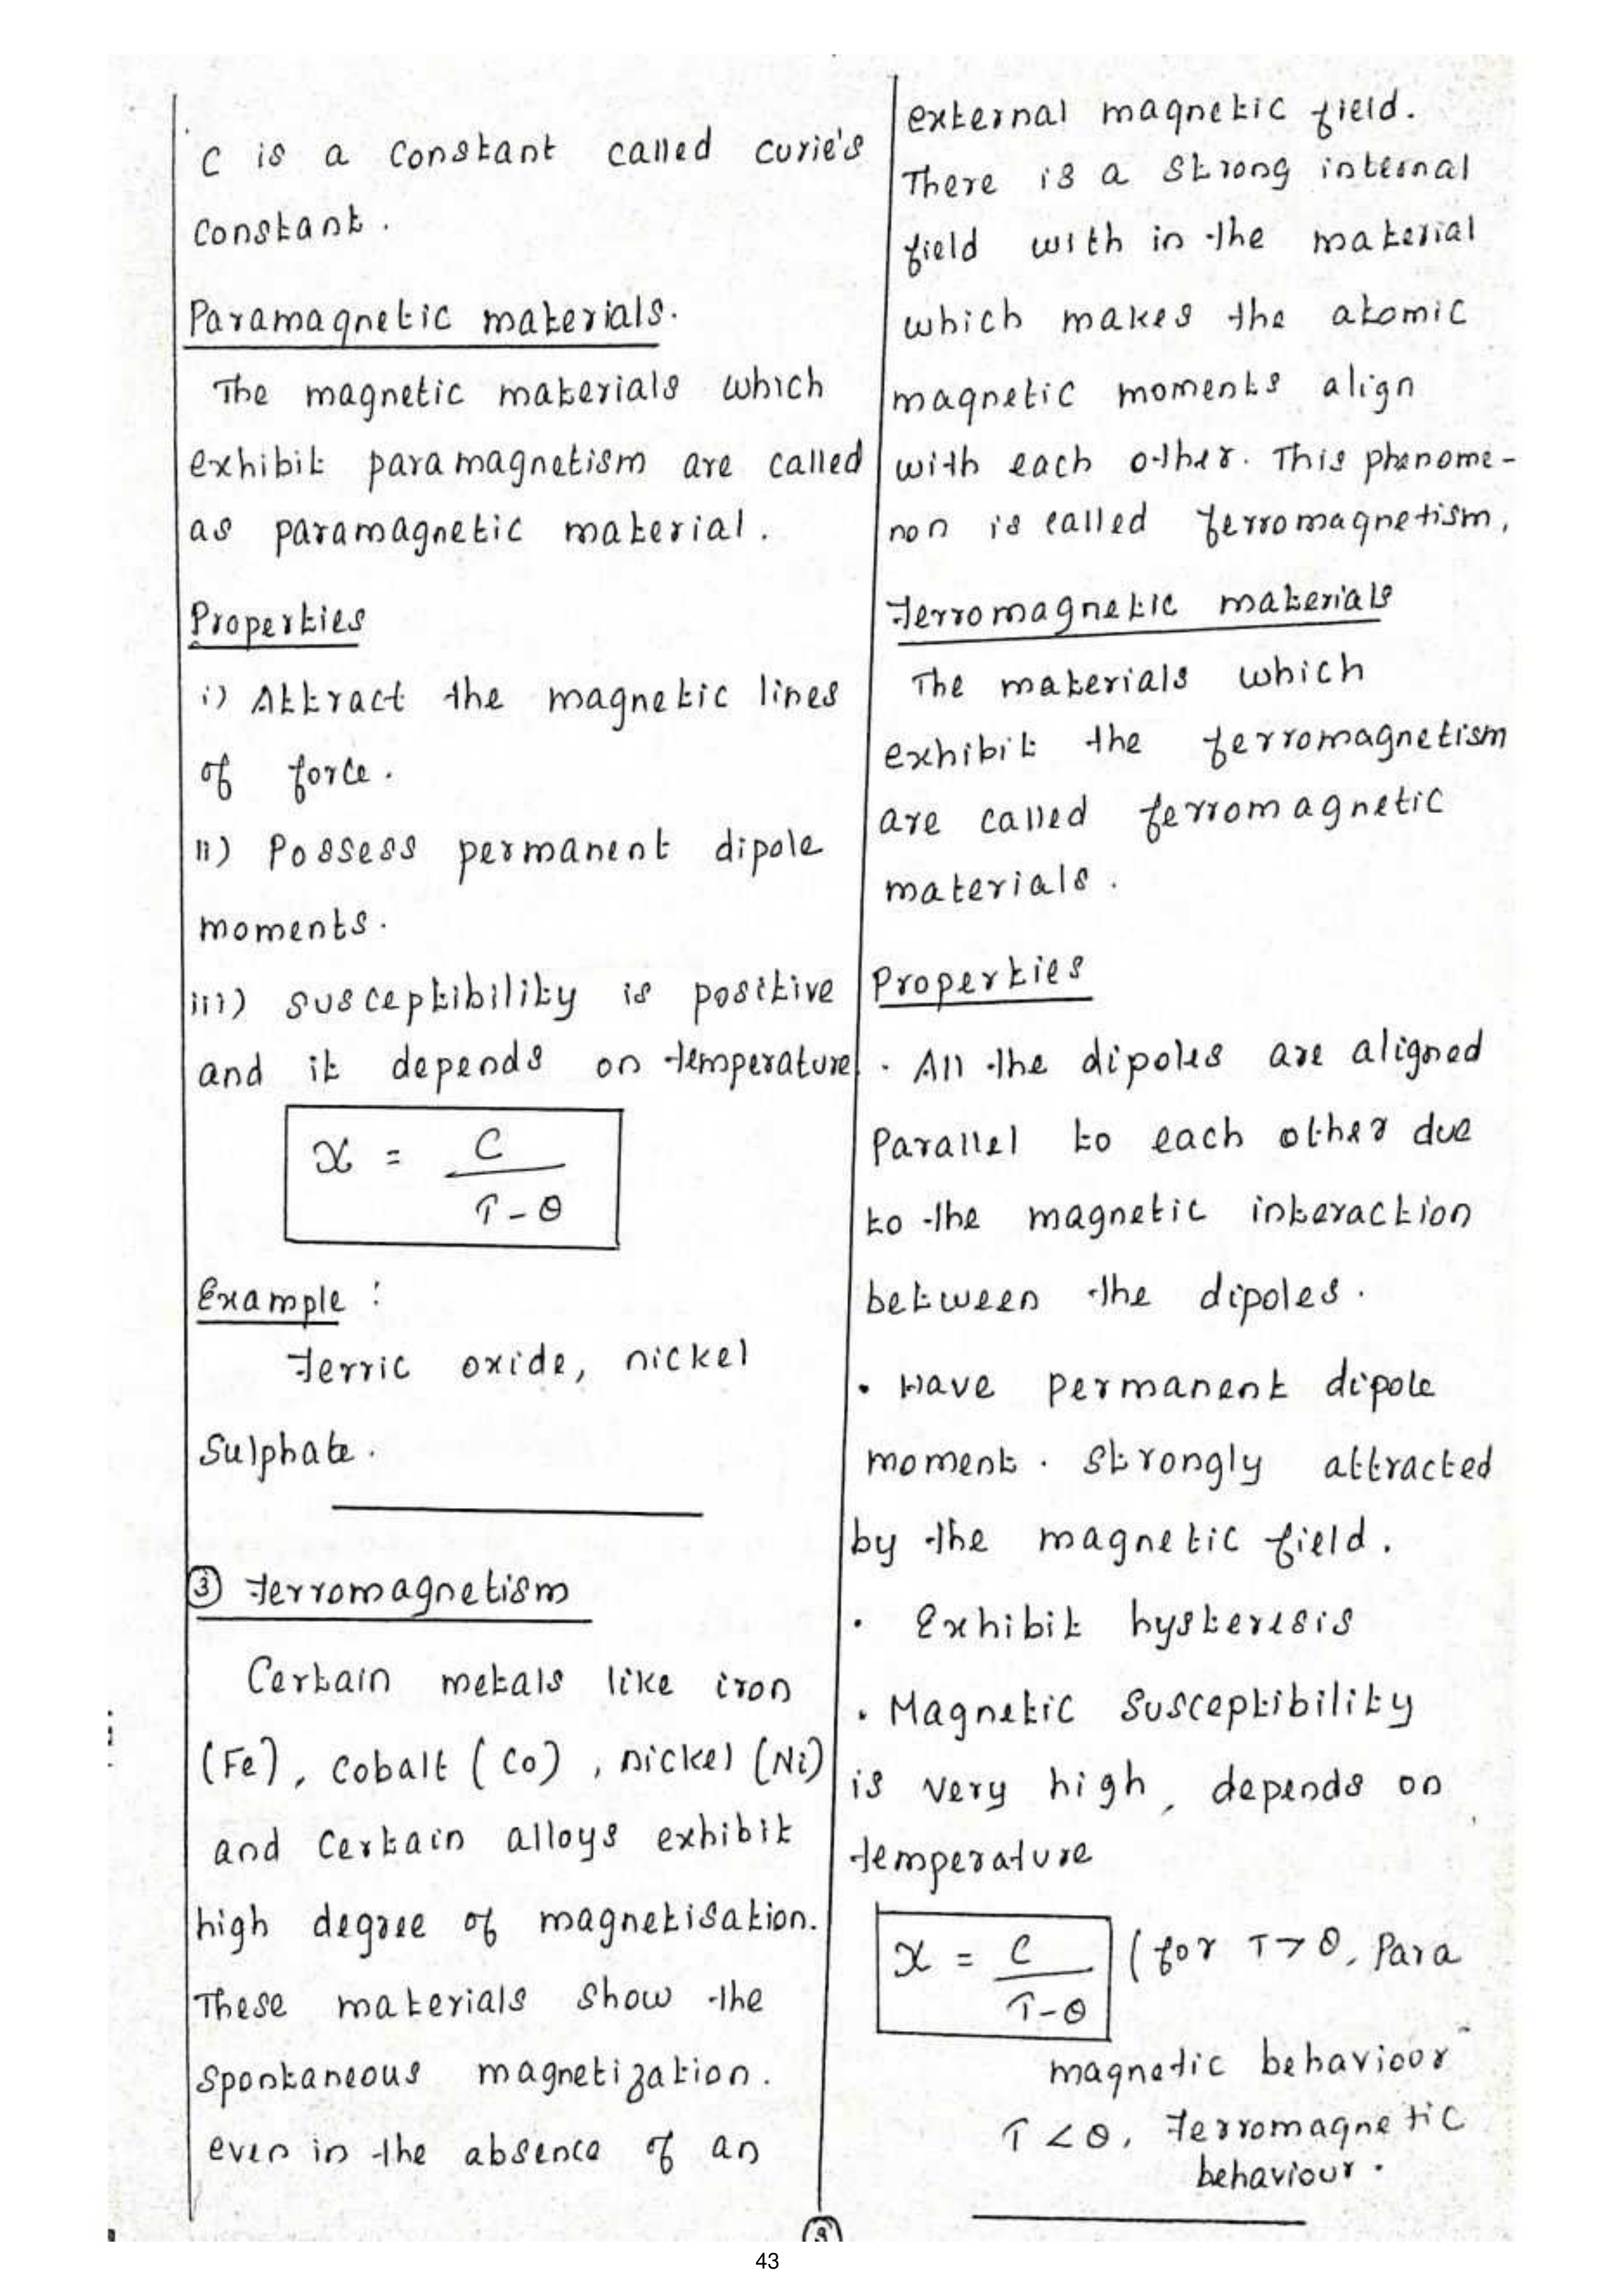 C is a constant called curie's
constant.
Paramagnetic materials.
The magnetic materials which
exhibit paramagnetism are called
as paramagnetic material.
Properties
i) Attract the magnetic lines
of force.
ii) Possess permanent dipole
moments.
iii) susceptibility is positive
and it depends on temperature
χ = C
T - θ
Example :
Ferric oxide, nickel
Sulphate.
③ Ferromagnetism
Certain metals like iron
(Fe), cobalt (Co), nickel (Ni)
and certain alloys exhibit
high degree of magnetisation.
These materials show the
spontaneous magnetization.
even in the absence of an
external magnetic field.
There is a strong internal
field with in the material
which makes the atomic
magnetic moments align
with each other. This phenome-
non is called ferromagnetism,
Ferromagnetic materials
The materials which
exhibit the ferromagnetism
are called ferromagnetic
materials.
Properties
. All the dipoles are aligned
Parallel to each other due
to the magnetic interaction
between the dipoles.
• Have permanent dipole
moment. Strongly attracted
by the magnetic field.
. Exhibit hysteresis
. Magnetic susceptibility
is very high, depends on
temperature
χ = C (for T > θ, Para
T-θ
magnetic behaviour
T < θ, Ferromagnetic
behaviour.
43